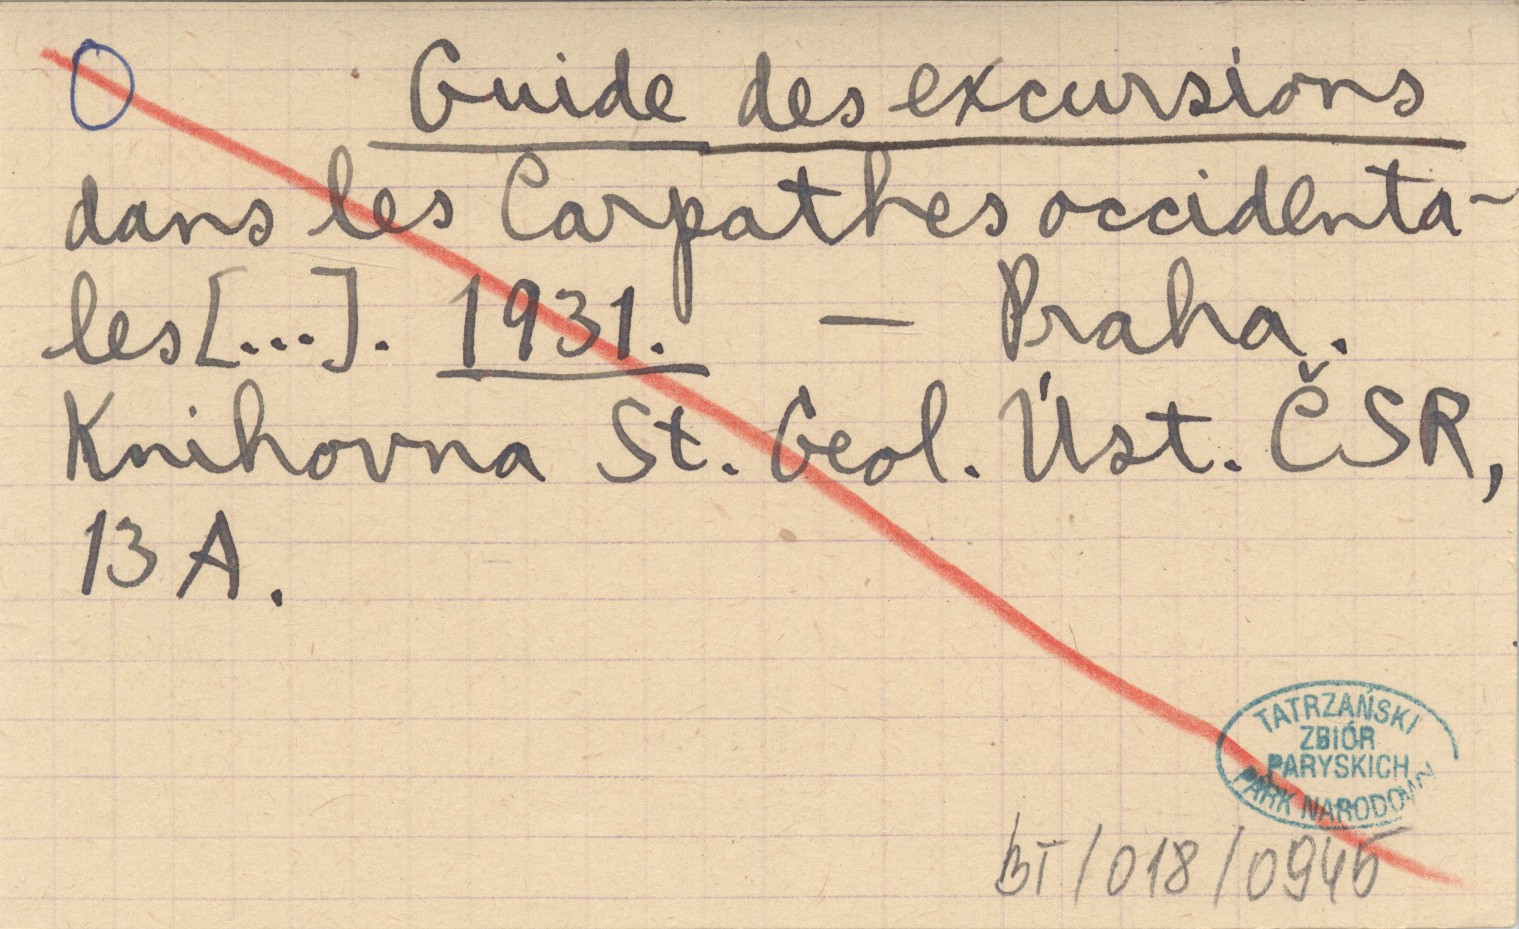 O Guide des excursions
dans les Carpathes occidenta-
les [...]. 1931. — Praha.
Knihovna St. Geol. Úst. ČSR,
13 A.
TATRZAŃSKI
ZBIÓR
PARYSKICH
PARK NARODOWY
BT/018/0945